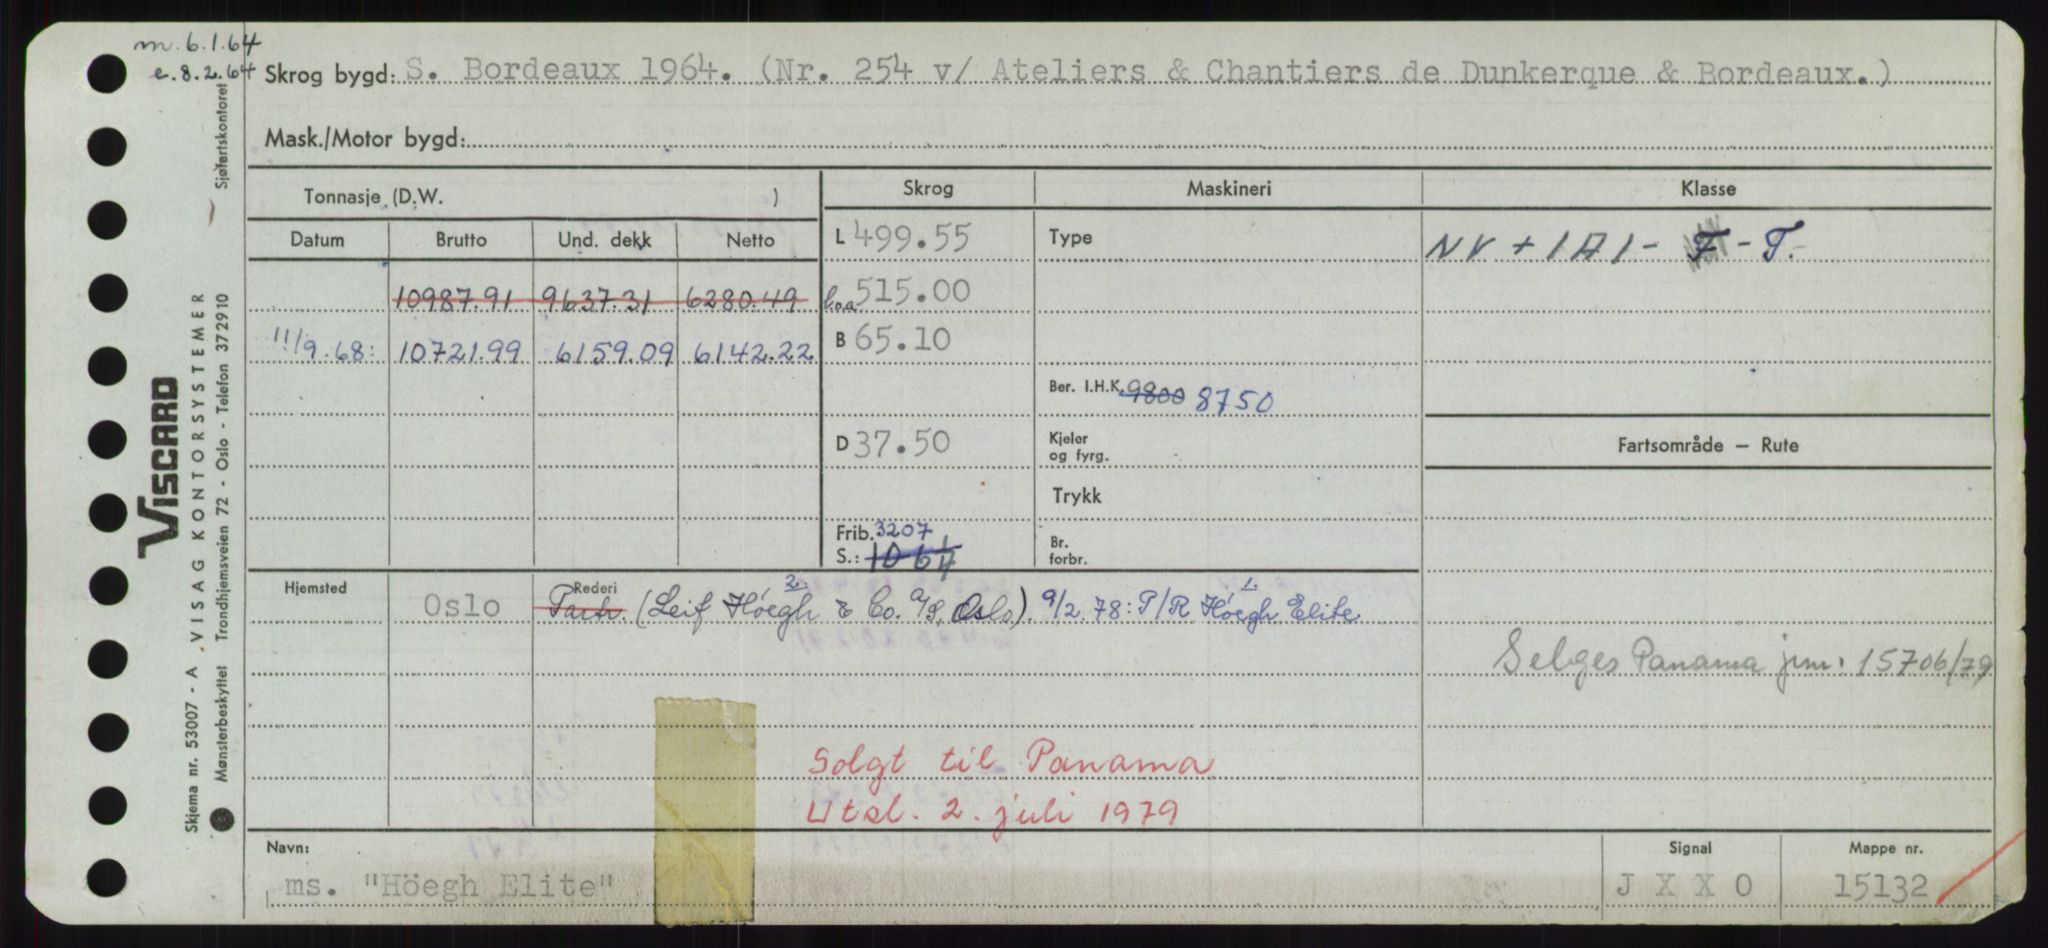 m. 6.1.64
e. 8.2.64
Skrog bygd: S. Bordeaux 1964. (Nr. 254 v/ Ateliers & Chantiers de Dunkerque & Bordeaux.)
Mask./Motor bygd:
Tonnasje (D.W. )
Skrog Maskineri Klasse
Datum Brutto Und. dekk Netto
L 499.55 Type NV + 1A1 - F - T.
10987.91 9637.31 6280.49
l.o.a. 515.00
11/9.68: 10721.99 6159.09 6142.22
B 65.10
Ber. I.H.K. 9800 8750
D 37.50
Kjeler
og fyrg.
Fartsområde — Rute
Trykk
Frib. 3207
S.: 1064
Br.
forbr.
Hjemsted Rederi
Oslo Partr. (Leif Höegh & Co. A/S, Oslo). 9/2.78: P/R Höegh Elite
2. 1.
Selges Panama jnr: 15706/79
Solgt til Panama
Utsl. 2. juli 1979
Navn: Signal Mappe nr.
ms. "Höegh Elite" J X X O 15132
Skjema nr. 53007 - A VISAG KONTORSYSTEMER Sjøfartskontoret
Mønsterbeskyttet Trondhjemsveien 72 - Oslo - Telefon 372910
VISCARD